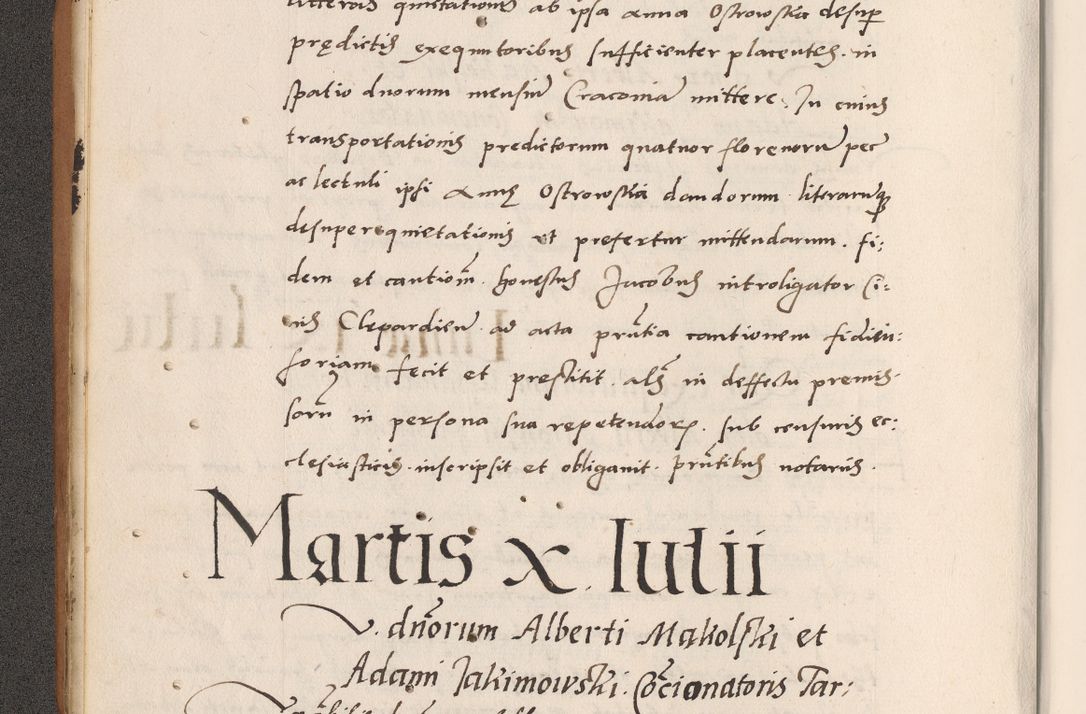 litteras quietationis ab ipsa Anna Ostrowska desup
prędictis exequutoribus sufficienter placentes in
spatio duorum mensiū Cracoviā mittere. In cuius
transportationis predictorum quatuor florenorū pec
ac lectuli ipsi Annę Ostrowska dandorum literarūq̧
desuper quietationis ut prefertur mittendarum. fi:
dem et cautioēm honestus Jacobus introligator Ci:
vis Clepardieñ ad acta prñtia cautionem fideiu:
soriam fecit et prestitit. als in deffectu premis
sorū in persona sua repetendorꝝ. sub censuris ec:
clesiasticis inscripsit et obligavit. prñtibus notariis.
Martis x Iulii
V. dñorum Alberti Makolski et
Adami Jakimowski. Cōcionatoris Tar: